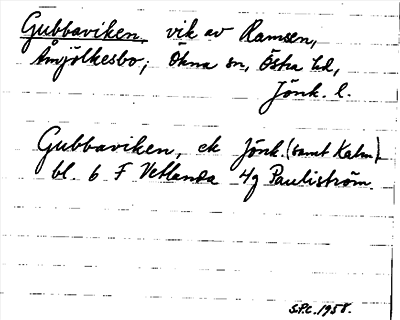 Gubbaviken, vik av Ramsen,
Åmjölkesbo; Ökna sn, Östra hd,
Jönk. l.
Gubbaviken, ek Jönk. (samt Kalm)
bl. 6 F Vetlanda 4g Pauliström.
S.P.C. 1958.